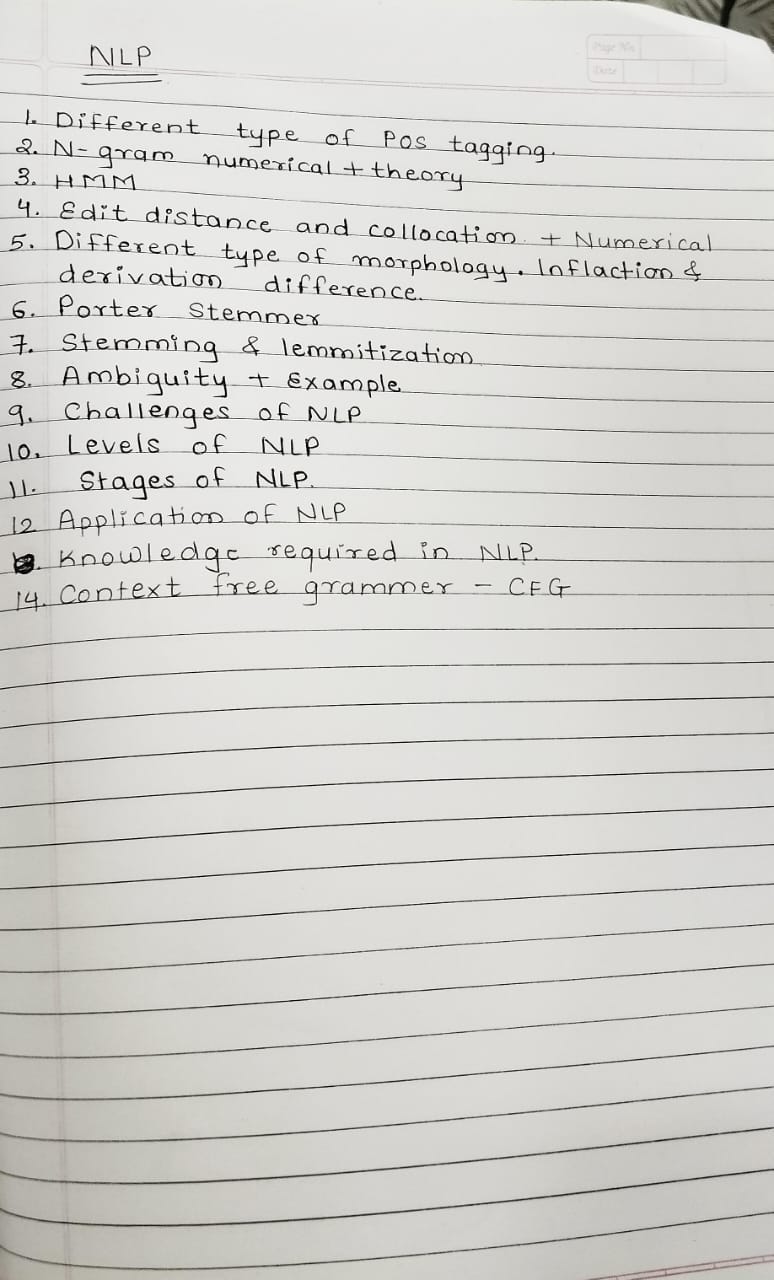 NLP
Page No.
Date
1. Different type of POS tagging.
2. N-gram numerical + theory
3. HMM
4. Edit distance and collocation. + Numerical
5. Different type of morphology. Inflaction &
derivation difference.
6. Porter Stemmer
7. Stemming & lemmitization
8. Ambiguity + Example
9. Challenges of NLP
10. Levels of NLP
11. Stages of NLP.
12 Application of NLP
Knowledge required in NLP.
14. Context free grammer - CFG